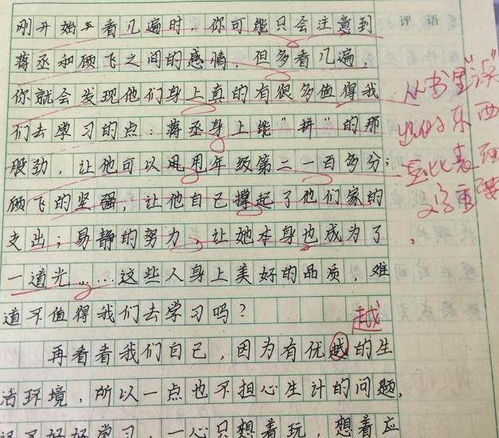 评语
刚开始看几遍时，你可能只会注意到
蒋丞和顾飞之间的感情，但多看几遍，
你就会发现他们身上真的有很多值得我
们去学习的点：蒋丞身上能"拼"的那
股劲，让他可以甩甩年级第二一百多分；
顾飞的坚强，让他自己撑起了他们家的
支出；易静的努力，让她本身也成为了
一道光……这些人身上美好的品质，难
道不值得我们去学习吗？
越
再看看我们自己，因为有优越的生
活环境，所以一点也不担心生计的问题，
好好学习，一心只想着玩，想着应
从书里"读"
出的东西
比表面
文字重要